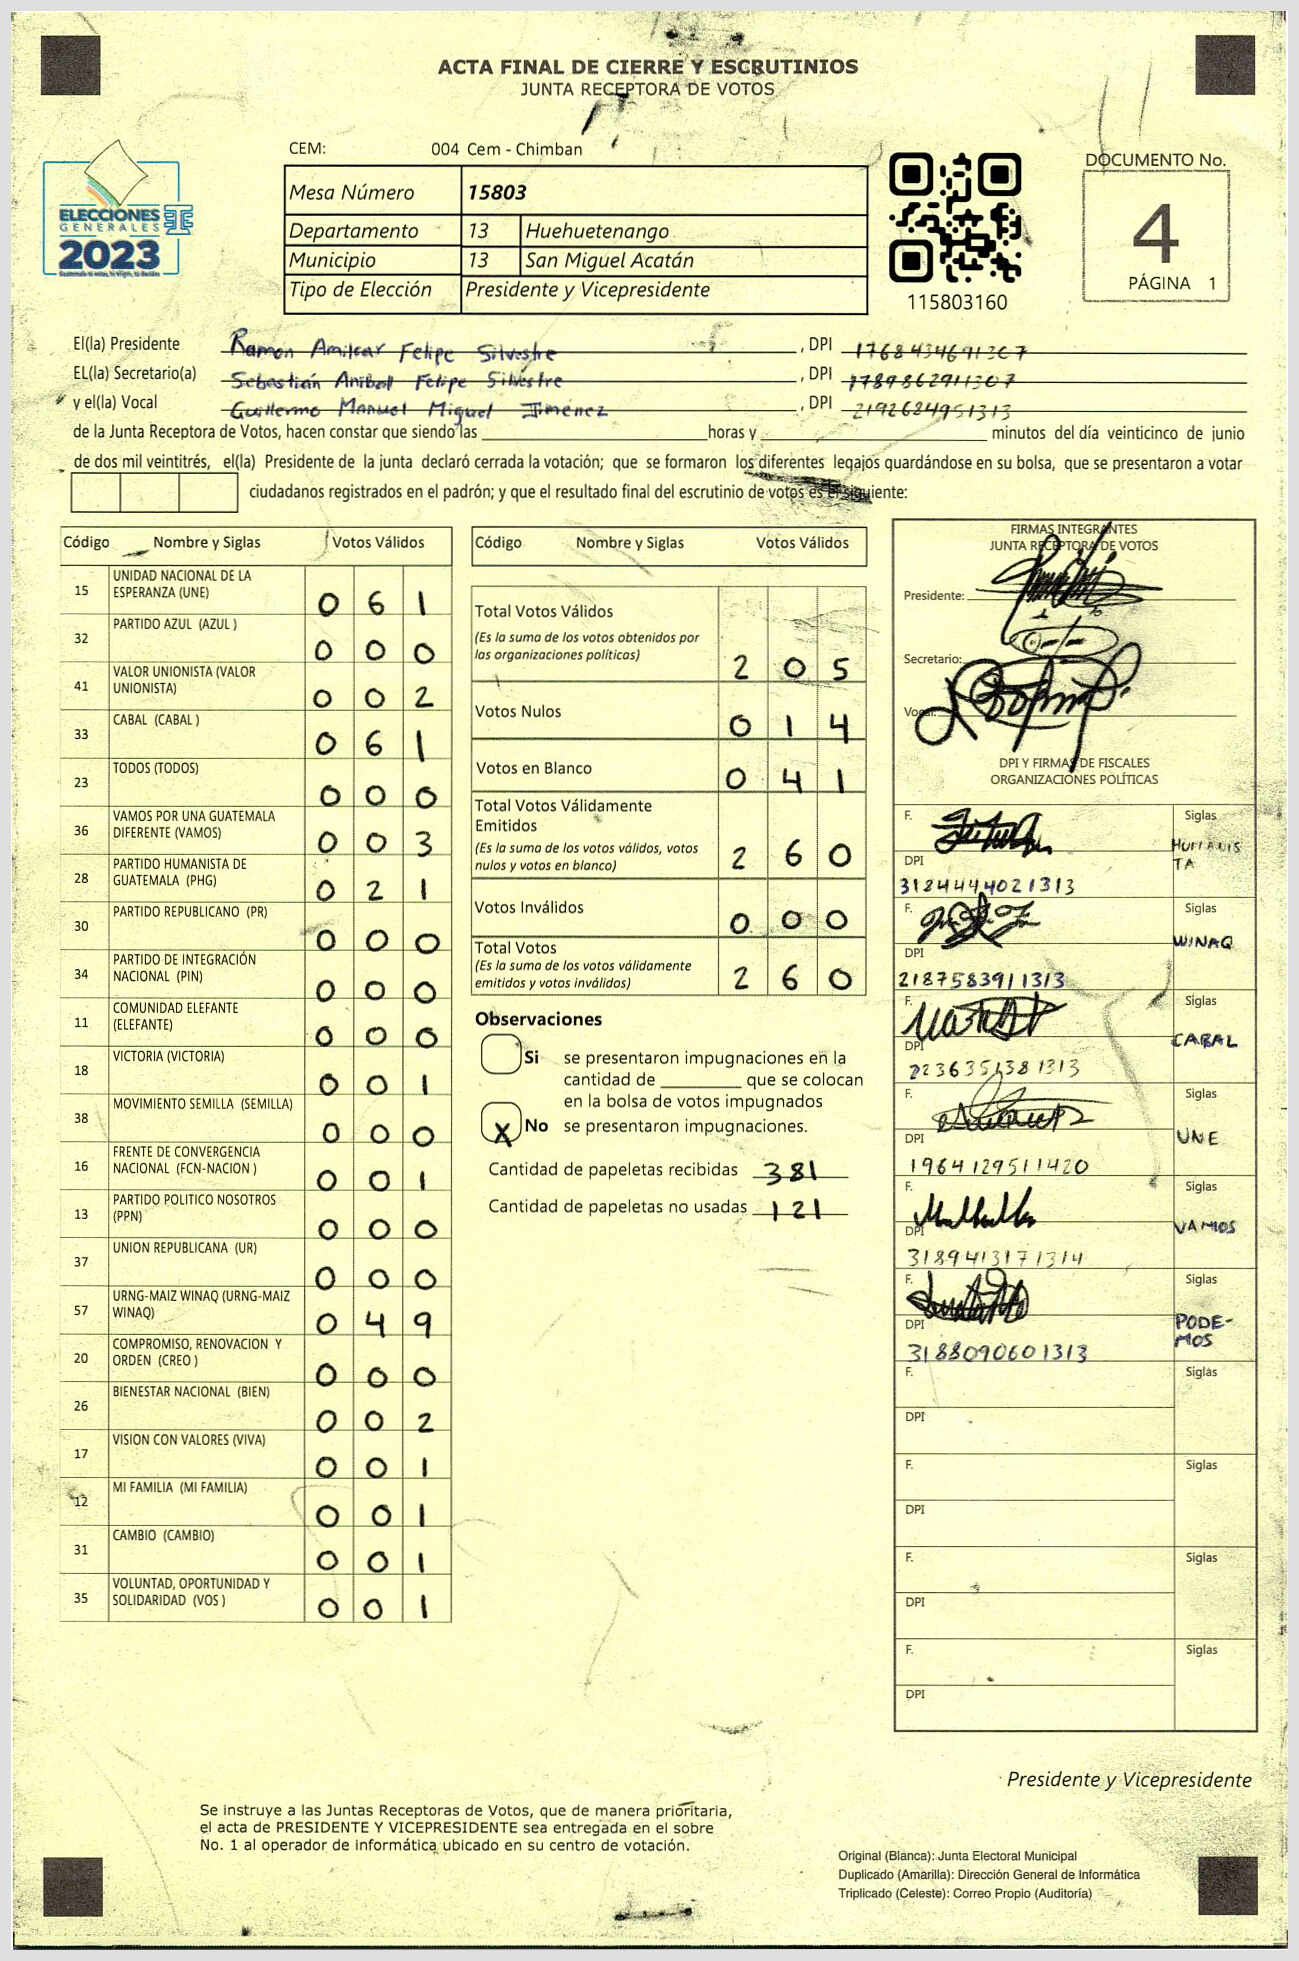 ACTA FINAL DE CIERRE Y ESCRUTINIOS
JUNTA RECEPTORA DE VOTOS
ELECCIONES
GENERALES
2023
CEM: 004 Cem - Chimban
Mesa Número 15803
Departamento 13 Huehuetenango
Municipio 13 San Miguel Acatán
Tipo de Elección Presidente y Vicepresidente
115803160
DOCUMENTO No.
4
PÁGINA 1
El(la) Presidente Ramon Amilcar Felipe Silvestre, DPI 1768434691307
EL(la) Secretario(a) Sebastián Anibal Felipe Silvestre, DPI 1789862911307
y el(la) Vocal Guillermo Manuel Miguel Jiménez, DPI 2192684951313
de la Junta Receptora de Votos, hacen constar que siendo las horas y minutos del día veinticinco de junio
de dos mil veintitrés, el(la) Presidente de la junta declaró cerrada la votación; que se formaron los diferentes legajos guardándose en su bolsa, que se presentaron a votar
ciudadanos registrados en el padrón; y que el resultado final del escrutinio de votos es el siguiente:
Código Nombre y Siglas Votos Válidos
15 UNIDAD NACIONAL DE LA ESPERANZA (UNE) 0 6 1
32 PARTIDO AZUL (AZUL ) 0 0 0
41 VALOR UNIONISTA (VALOR UNIONISTA) 0 0 2
33 CABAL (CABAL ) 0 6 1
23 TODOS (TODOS) 0 0 0
36 VAMOS POR UNA GUATEMALA DIFERENTE (VAMOS) 0 0 3
28 PARTIDO HUMANISTA DE GUATEMALA (PHG) 0 2 1
30 PARTIDO REPUBLICANO (PR) 0 0 0
34 PARTIDO DE INTEGRACIÓN NACIONAL (PIN) 0 0 0
11 COMUNIDAD ELEFANTE (ELEFANTE) 0 0 0
18 VICTORIA (VICTORIA) 0 0 1
38 MOVIMIENTO SEMILLA (SEMILLA) 0 0 0
16 FRENTE DE CONVERGENCIA NACIONAL (FCN-NACION ) 0 0 1
13 PARTIDO POLITICO NOSOTROS (PPN) 0 0 0
37 UNION REPUBLICANA (UR) 0 0 0
57 URNG-MAIZ WINAQ (URNG-MAIZ WINAQ) 0 4 9
20 COMPROMISO, RENOVACION Y ORDEN (CREO ) 0 0 0
26 BIENESTAR NACIONAL (BIEN) 0 0 2
17 VISION CON VALORES (VIVA) 0 0 1
12 MI FAMILIA (MI FAMILIA) 0 0 1
31 CAMBIO (CAMBIO) 0 0 1
35 VOLUNTAD, OPORTUNIDAD Y SOLIDARIDAD (VOS ) 0 0 1
Código Nombre y Siglas Votos Válidos
Total Votos Válidos 2 0 5
(Es la suma de los votos obtenidos por
las organizaciones políticas)
Votos Nulos 0 1 4
Votos en Blanco 0 4 1
Total Votos Válidamente
Emitidos 2 6 0
(Es la suma de los votos válidos, votos
nulos y votos en blanco)
Votos Inválidos 0 0 0
Total Votos 2 6 0
(Es la suma de los votos válidamente
emitidos y votos inválidos)
Observaciones
Si se presentaron impugnaciones en la
cantidad de que se colocan
en la bolsa de votos impugnados
X No se presentaron impugnaciones.
Cantidad de papeletas recibidas 381
Cantidad de papeletas no usadas 121
FIRMAS INTEGRANTES
JUNTA RECEPTORA DE VOTOS
Presidente:
Secretario:
Vocal:
DPI Y FIRMAS DE FISCALES
ORGANIZACIONES POLÍTICAS
F. Siglas HUMANISTA
DPI 3184444021313
F. Siglas WINAQ
DPI 2187583911313
F. Siglas CABAL
DPI 2236351381313
F. Siglas UNE
DPI 1964129511420
F. Siglas VAMOS
DPI 3189413171314
F. Siglas PODE-
MOS
DPI 3188090601313
F. Siglas
DPI
F. Siglas
DPI
F. Siglas
DPI
F. Siglas
DPI
Presidente y Vicepresidente
Se instruye a las Juntas Receptoras de Votos, que de manera prioritaria,
el acta de PRESIDENTE Y VICEPRESIDENTE sea entregada en el sobre
No. 1 al operador de informática ubicado en su centro de votación.
Original (Blanca): Junta Electoral Municipal
Duplicado (Amarilla): Dirección General de Informática
Triplicado (Celeste): Correo Propio (Auditoría)